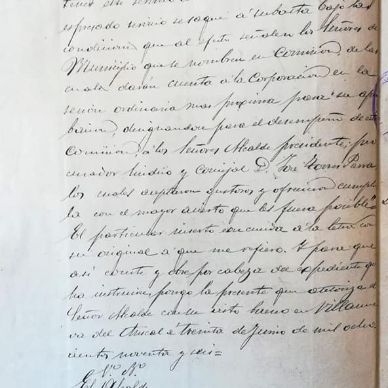 espresado servicio se saque á subasta bajo las
condiciones que al efecto señalen los Señores de
Municipio que se nombren en Comision de las
cuales darán cuenta á la Corporacion en la
sesion ordinaria mas proxima para su apro
bacion, designandose para el desempeño de esta
Comision á los Señores Alcalde presidente, pro
curador Sindico y Concejal D. José Torres Parra
los cuales aceptaron gustosos y ofrecieron cumplir
la con el mayor acierto que les fuera posible=
El particular inserto concuerda á la letra con
su original á que me refiero. Y para que
así conste y obre por cabeza del expediente que
ha de instruirse, pongo la presente que autoriza el
Señor Alcalde con su visto bueno en Villanue
va del Ariscal á treinta de Junio de mil ocho
cientos noventa y seis=
Vº Bº
El Alcalde